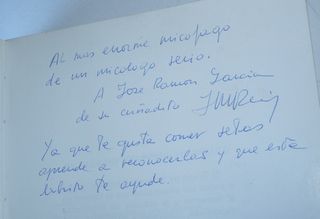 Al mas enorme micofago
de un micologo serio.
A Jose Ramon Garcia
de su cuñadito
Ya que te gusta comer setas
aprende a reconocerlas y que este
librito te ayude.